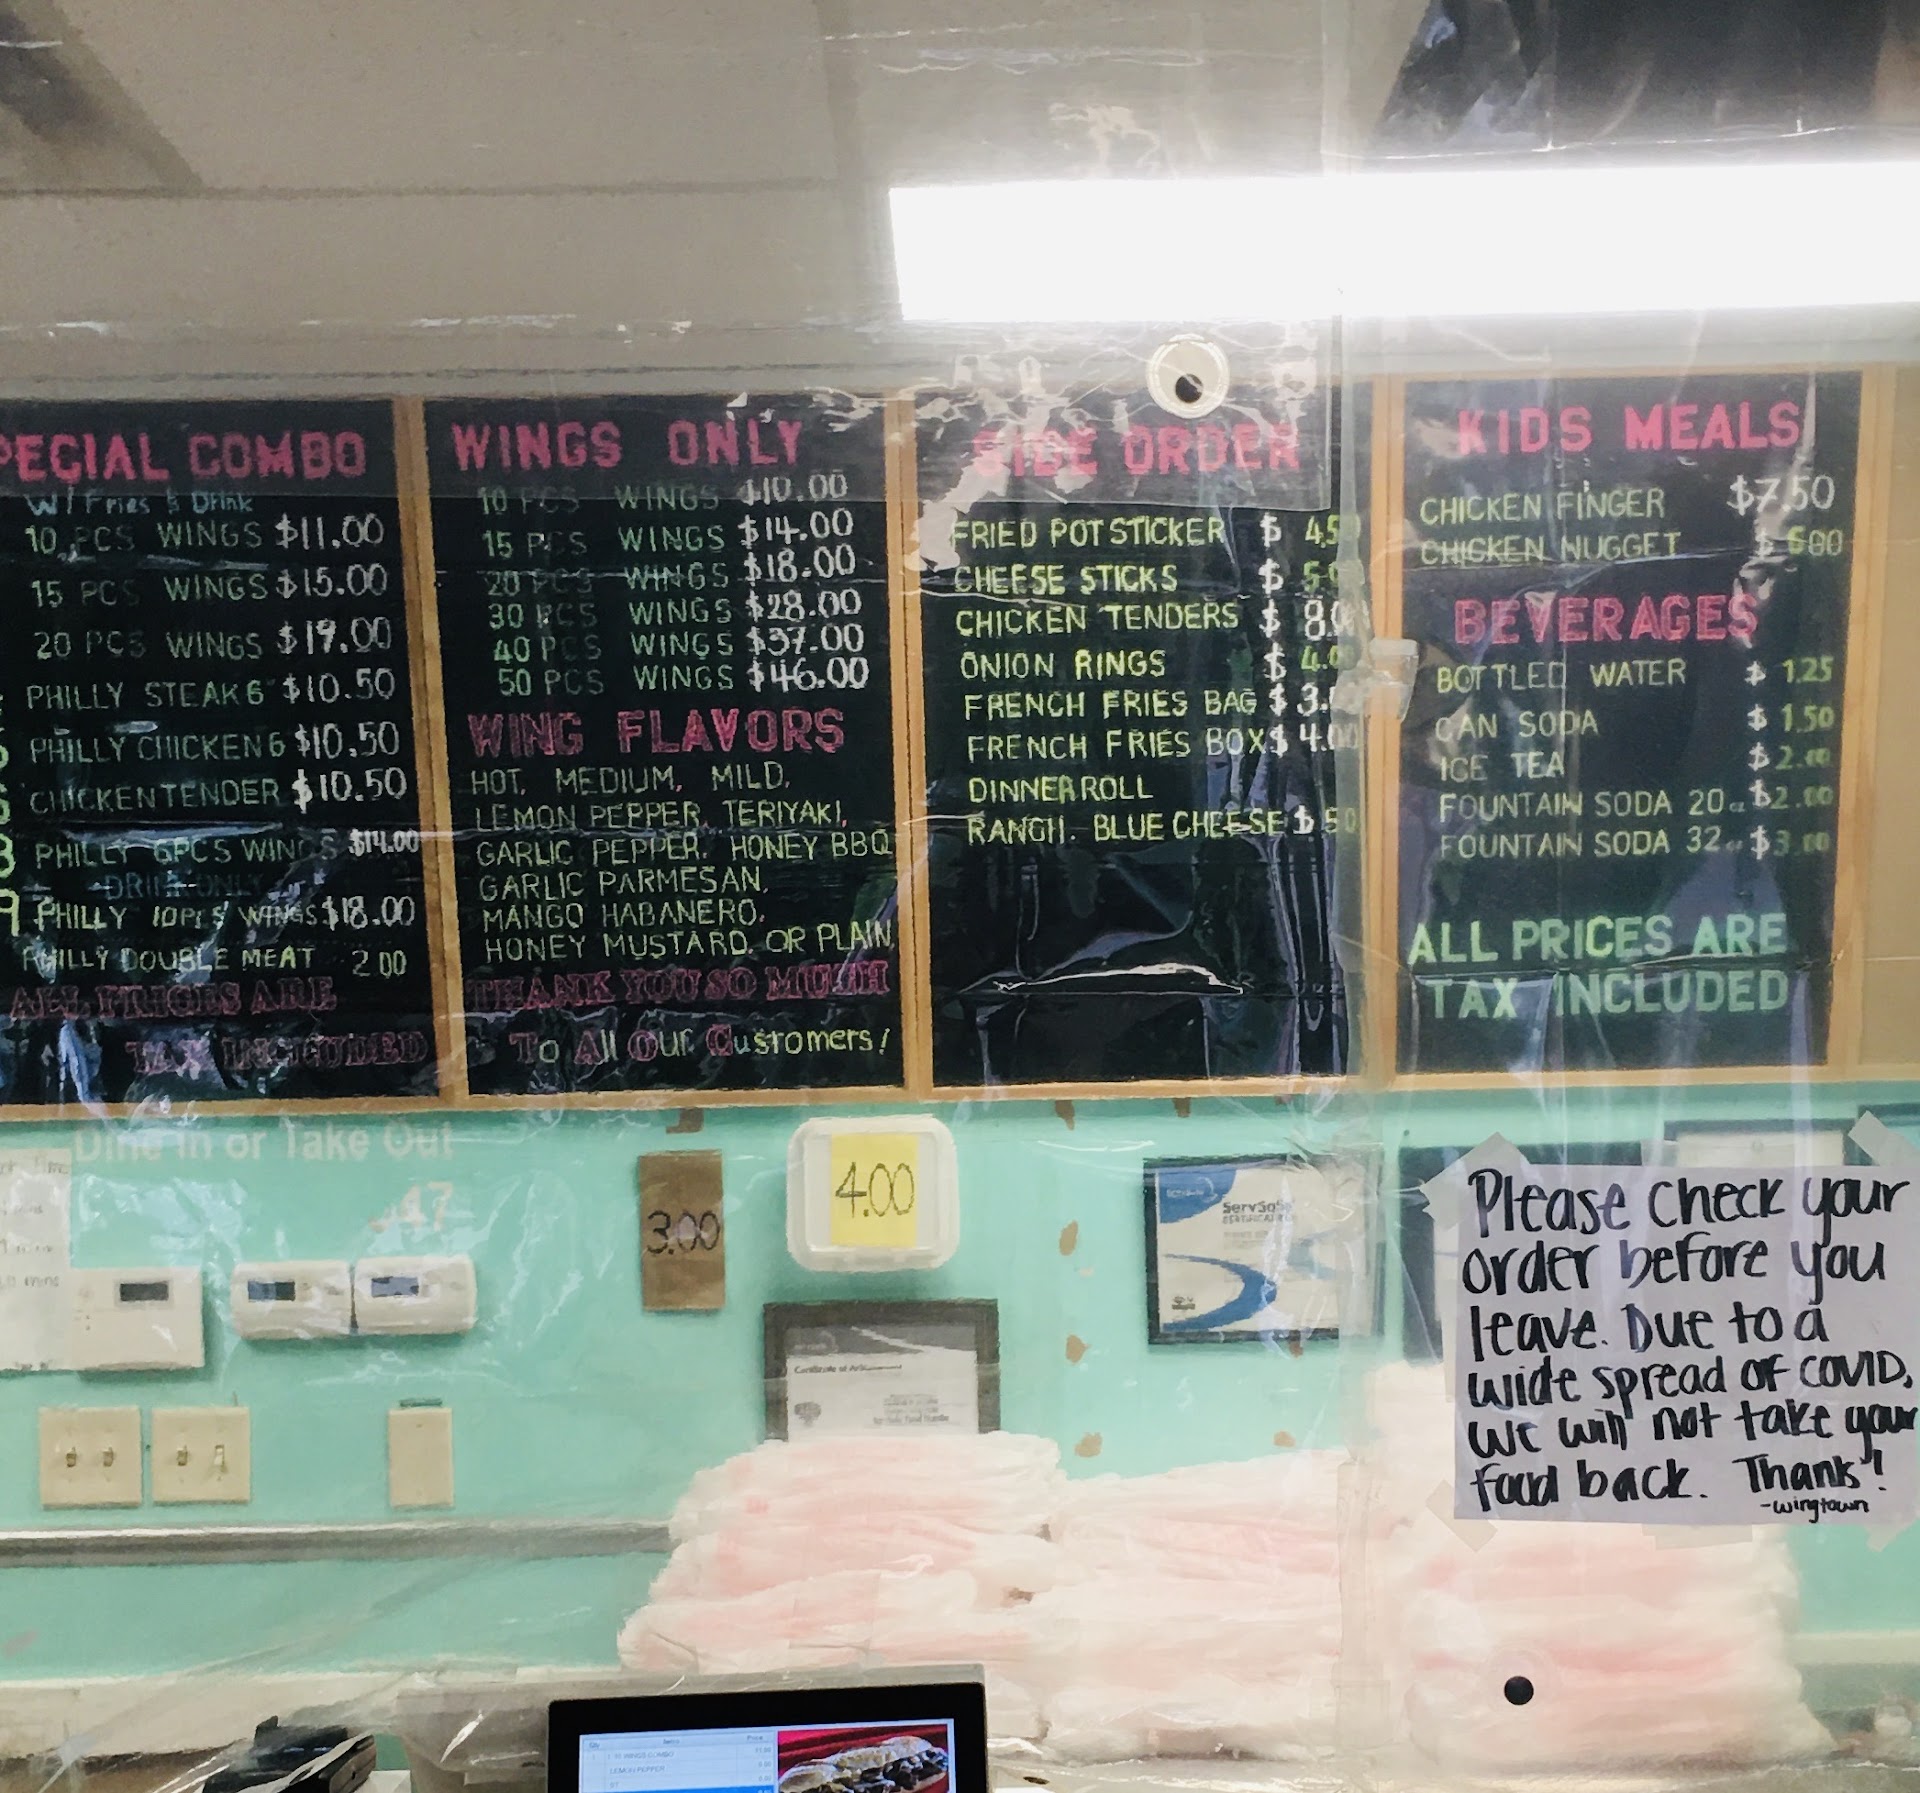 PECIAL COMBO
W/ Fries & Drink
10 PCS WINGS $11.00
15 PCS WINGS $15.00
20 PCS WINGS $19.00
PHILLY STEAK 6" $10.50
PHILLY CHICKEN 6 $10.50
CHICKEN TENDER $10.50
PHILLY 6PCS WINGS $14.00
DRINK ONLY
9 PHILLY 10PCS WINGS $18.00
PHILLY DOUBLE MEAT 2.00
ALL PRICES ARE
TAX INCLUDED
WINGS ONLY
10 PCS WINGS $10.00
15 PCS WINGS $14.00
20 PCS WINGS $18.00
30 PCS WINGS $28.00
40 PCS WINGS $37.00
50 PCS WINGS $46.00
WING FLAVORS
HOT, MEDIUM, MILD,
LEMON PEPPER, TERIYAKI,
GARLIC PEPPER, HONEY BBQ
GARLIC PARMESAN,
MANGO HABANERO,
HONEY MUSTARD, OR PLAIN,
THANK YOU SO MUCH
To All Our Customers!
SIDE ORDER
FRIED POTSTICKER $ 4.5
CHEESE STICKS $ 5.0
CHICKEN TENDERS $ 8.0
ONION RINGS $ 4.0
FRENCH FRIES BAG $ 3.
FRENCH FRIES BOX $ 4.00
DINNER ROLL
RANCH, BLUE CHEESE $ 50
KIDS MEALS
CHICKEN FINGER $7.50
CHICKEN NUGGET $ 6.00
BEVERAGES
BOTTLED WATER $ 1.25
CAN SODA $ 1.50
ICE TEA $ 2.00
FOUNTAIN SODA 20oz $2.00
FOUNTAIN SODA 32oz $3.00
ALL PRICES ARE
TAX INCLUDED
Dine In or Take Out
47
3.00
4.00
ServSafe
CERTIFICATION
Certificate of
Please check your
order before you
leave. Due to a
wide spread of COVID,
we will not take your
food back. Thanks!
-wingtown
Qty Items Price
10 WINGS COMBO
LEMON PEPPER